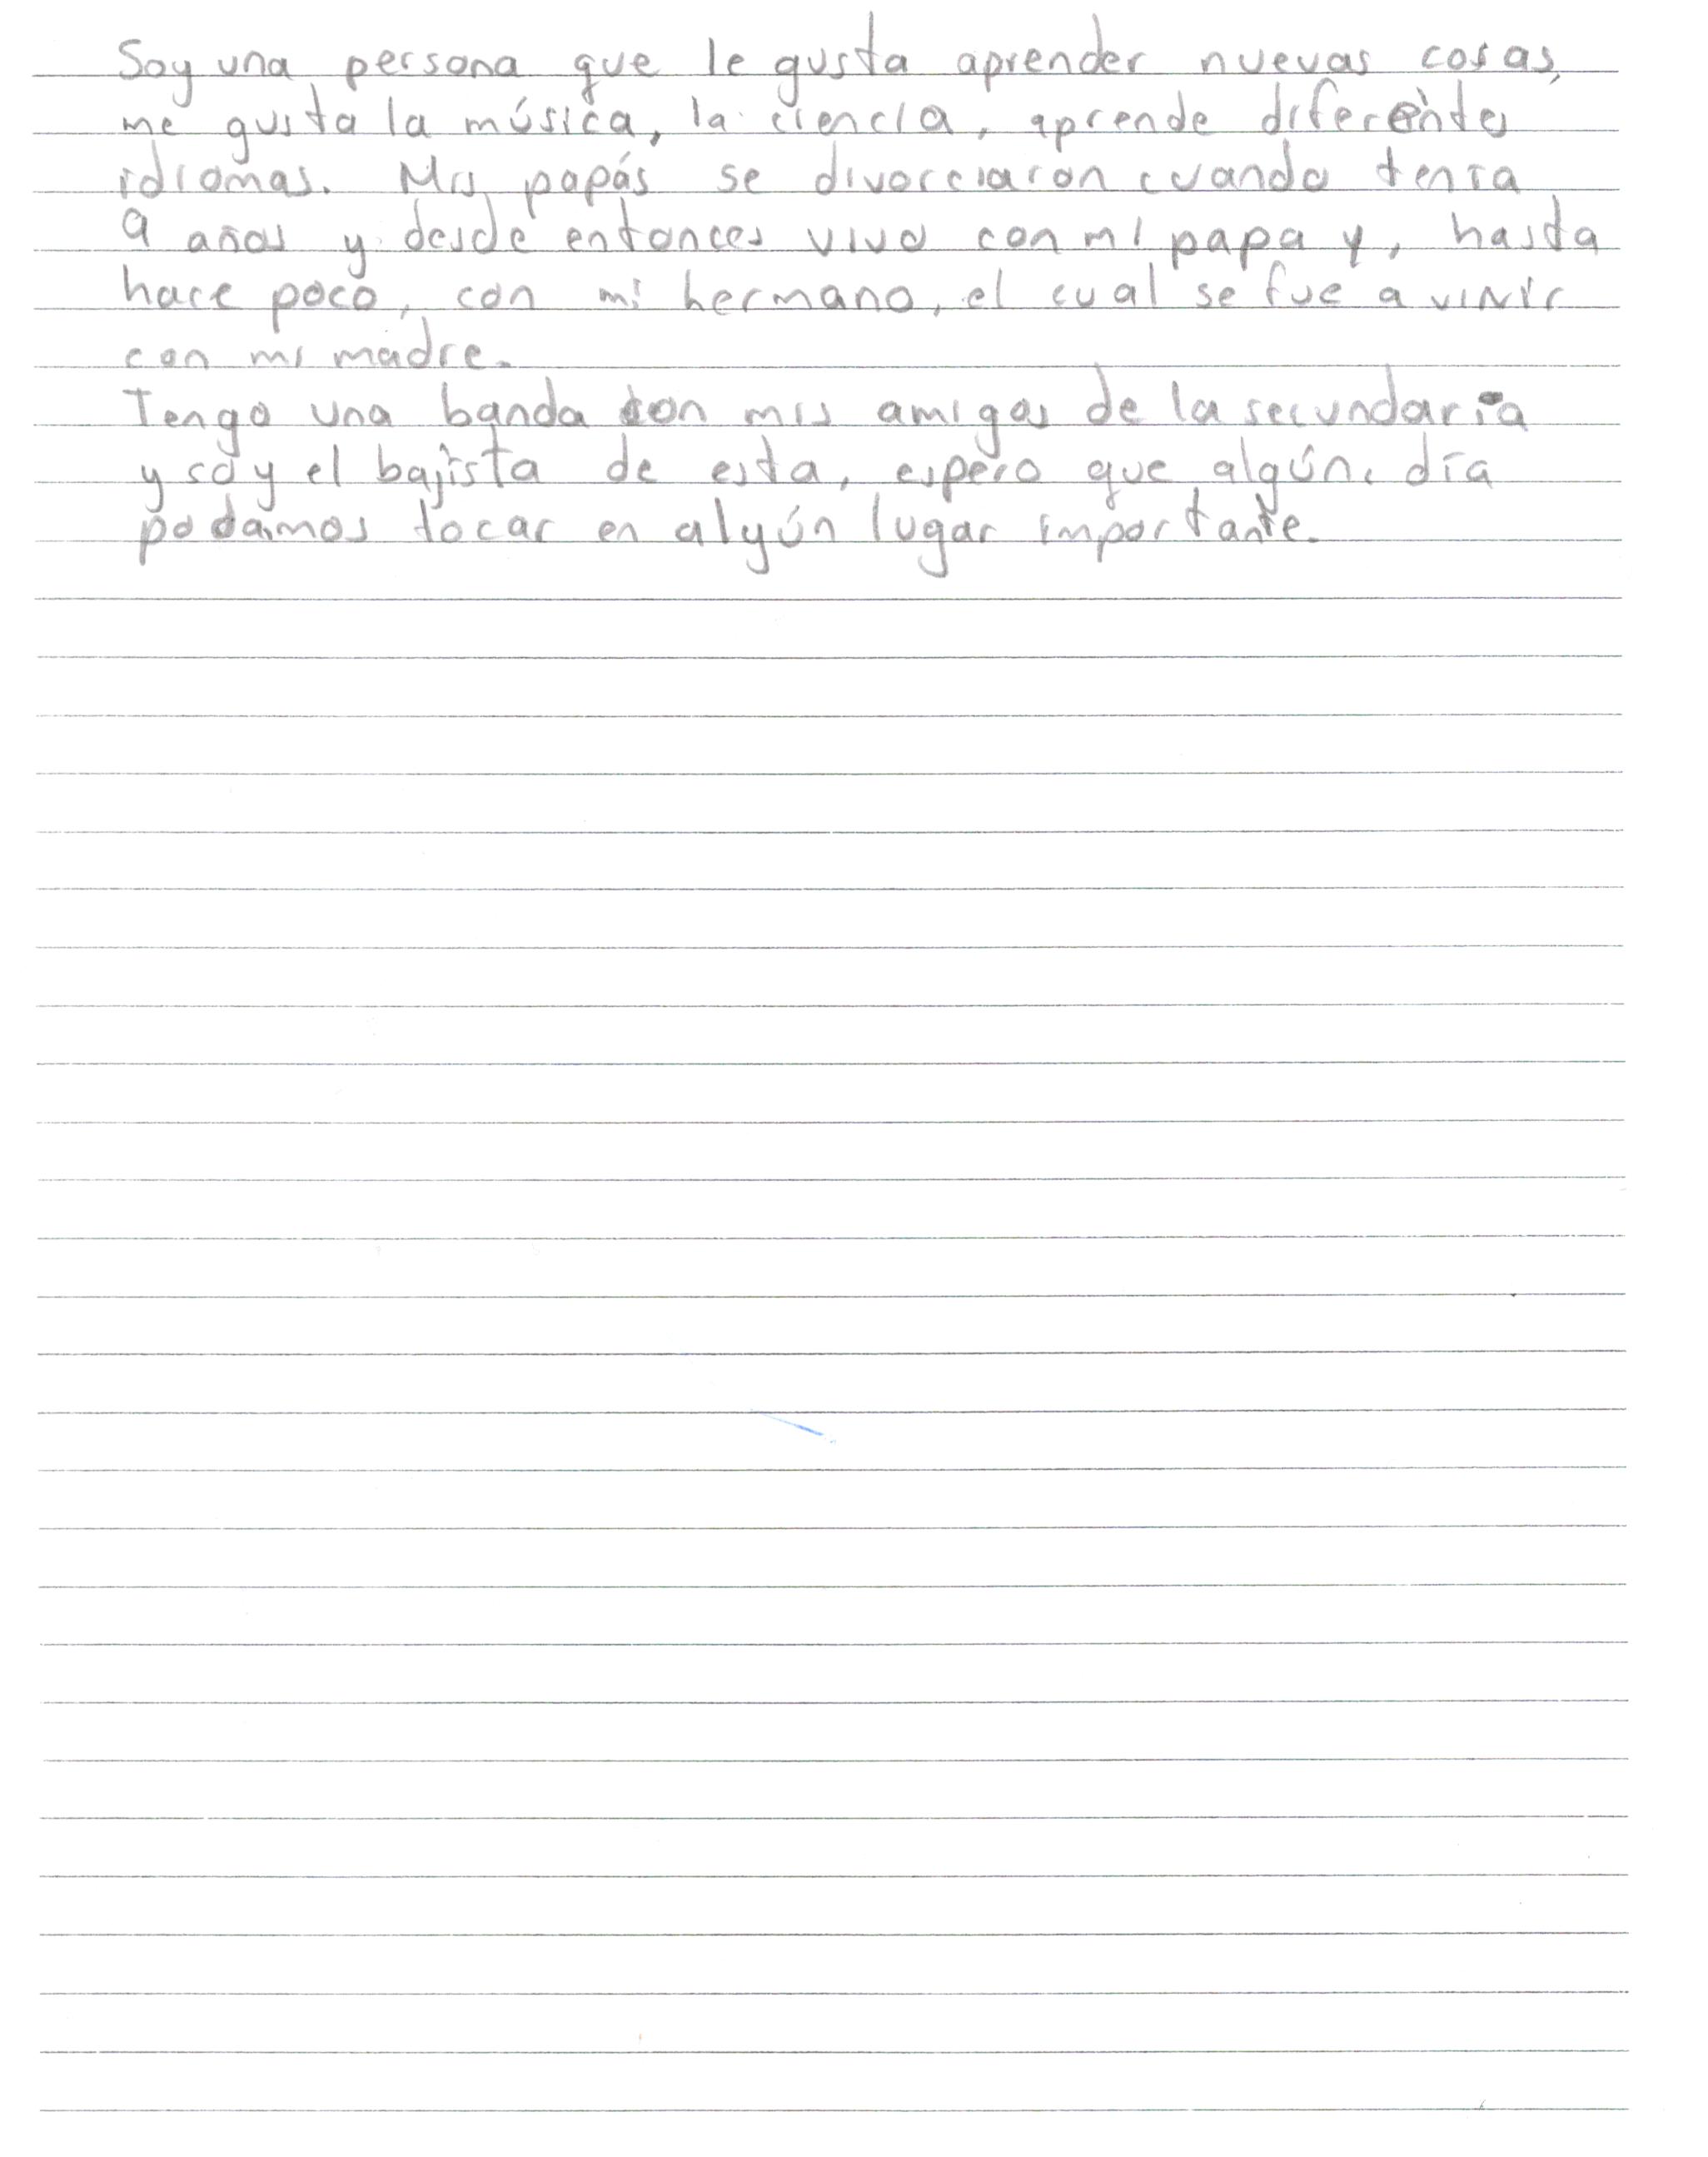 Soy una persona que le gusta aprender nuevas cosas,
me gusta la música, la ciencia, aprende diferentes
idiomas. Mis papás se divorciaron cuando tenía
9 años y desde entonces vivo con mi papa y, hasta
hace poco, con mi hermano, el cual se fue a vivir
con mi madre.
Tengo una banda con mis amigos de la secundaria
y soy el bajista de esta, espero que algún día
podamos tocar en algún lugar importante.